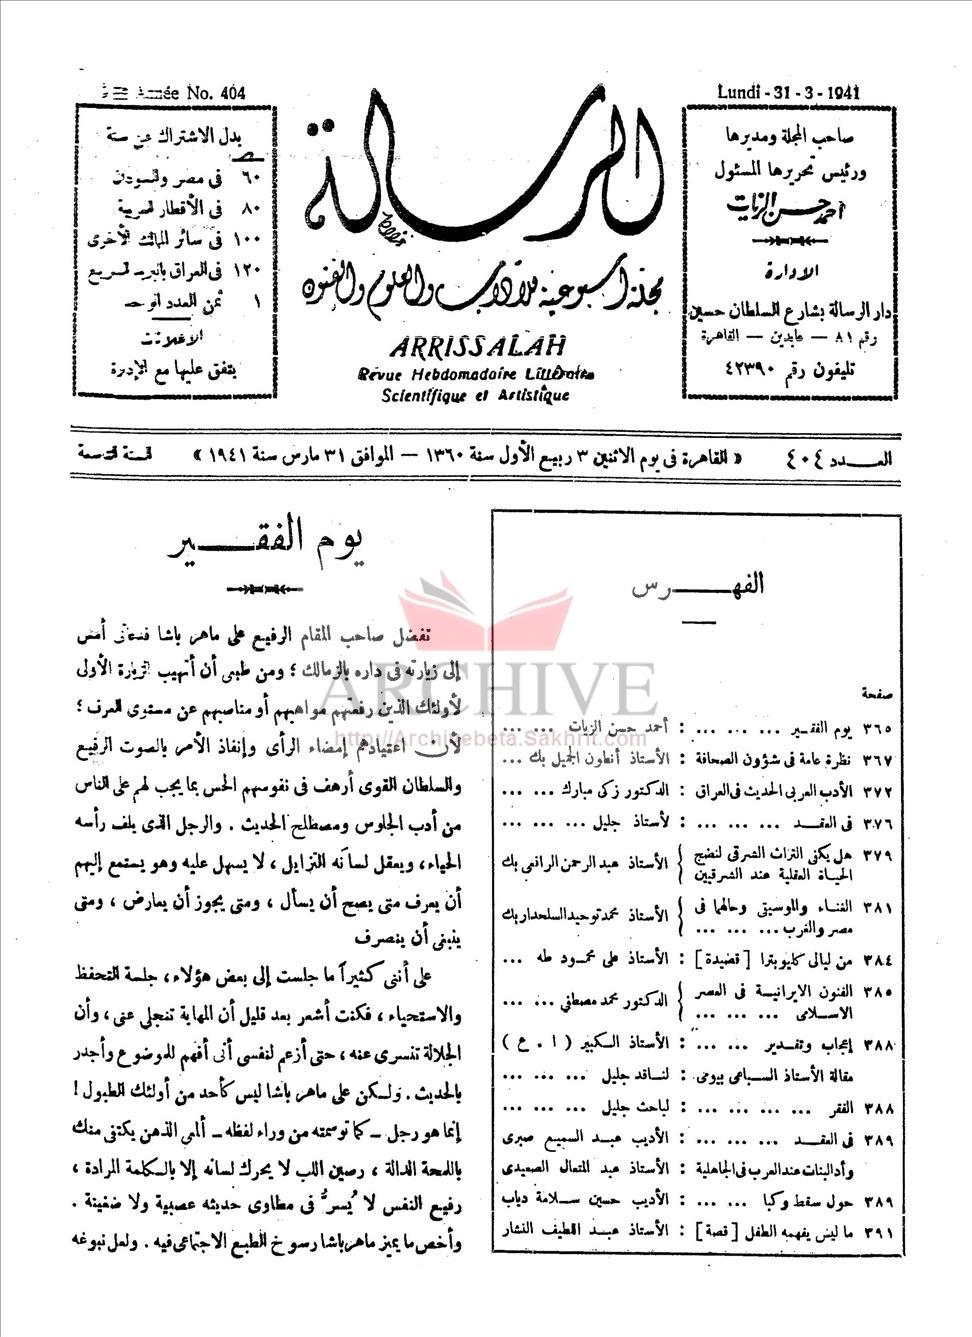 Année No. 404
Lundi - 31 - 3 - 1941
صاحب المجلة ومديرها
ورئيس تحريرها المسئول
احمد حسن الزيات
الادارة
دار الرسالة بشارع السلطان حسين
رقم ٨١ — عابدين — القاهرة
تليفون رقم ٤٢٣٩٠
الرسالة
مجلة أسبوعية للآداب والعلوم والفنون
ARRISSALAH
Revue Hebdomadaire Littéraire
Scientifique et Artistique
بدل الاشتراك عن سنة
٦٠ فى مصر والسودان
٨٠ فى الأقطار العربية
١٠٠ فى سائر الممالك الأخرى
١٢٠ فى العراق بالبريد السريع
١ ثمن العدد الواحد
الاعلانات
يتفق عليها مع الإدارة
العـــدد ٤٠٤
« القاهرة فى يوم الاثنين ٣ ربيع الأول سنة ١٣٦٠ — الموافق ٣١ مارس سنة ١٩٤١ »
السنة التاسعة
الفهـــرس
صفحة
٣٦٥ يوم الفقير ... ... ... : أحمد حسن الزيات ... ...
٣٦٧ نظرة عامة فى شؤون الصحافة : الأستاذ أنطون الجميل بك ...
٣٧٢ الأدب العربى الحديث فى العراق : الدكتور زكى مبارك ... ...
٣٧٦ فى العقد ... ... ... : لأستاذ جليل ... ... ...
٣٧٩ هل يكفى التراث الشرقى لنضج الحياة العقلية عند الشرقيين : الأستاذ عبد الرحمن الرافعى بك
٣٨١ الغناء والموسيقى وحالهما فى مصر والغرب ... ... ... : الأستاذ محمد توحيد السلحدار بك
٣٨٤ من ليالى كليوبترا [ قصيدة ] : الأستاذ على محمود طه ...
٣٨٥ الفنون الايرانية فى العصر الاسلامى ... ... ... : الدكتور محمد مصطفى ... ...
٣٨٨ إعجاب وتقدير ... ... : الأستاذ الكبير ( ا . ع )
مقالة الأستاذ السباعى بيومى : لناقد جليل ... ... ...
٣٨٨ الفقر ... ... ... ... : لباحث جليل ... ... ...
٣٨٩ فى العقد ... ... ... : الأديب عبد السميع صبرى
وأد البنات عند العرب فى الجاهلية : الأستاذ عبد المتعال الصعيدى
٣٨٩ حول سقط وكبا ... ... : الأديب حسين سلامة دياب
٣٩١ ما ليس يفهمه الطفل [ قصة ] : الأستاذ عبد اللطيف النشار
يوم الفقــــير
تفضل صاحب المقام الرفيع على ماهر باشا فدعانى أمس
إلى زيارته فى داره بالزمالك ؛ ومن طبعى أن أتهيب الزيارة الأولى
لأولئك الذين رفعتهم مواهبهم أو مناصبهم عن مستوى العرف ؛
لأن اعتيادهم إمضاء الرأى وإنفاذ الأمر بالصوت الرفيع
والسلطان القوى أرهف فى نفوسهم الحس بما يجب لهم على الناس
من أدب الجلوس ومصطلح الحديث . والرجل الذى يلف رأسه
الحياء ، ويعقل لسانه التزايل ، لا يسهل عليه وهو يستمع إليهم
أن يعرف متى يصح أن يسأل ، ومتى يجوز أن يعارض ، ومتى
ينبغى أن ينصرف
على أننى كثيراً ما جلست إلى بعض هؤلاء ، جلسة التحفظ
والاستحياء ، فكنت أشعر بعد قليل أن المهابة تنجلى عنى ، وأن
الجلالة تنسرى عنه ، حتى أزعم لنفسى أنى أفهم للموضوع وأجدر
بالحديث . ولكن على ماهر باشا ليس كأحد من أولئك الطبول !
إنما هو رجل – كما توسمته من وراء لفظه – ألمعى الذهن يكتفى منك
باللمحة الدالة ، رصين اللب لا يحرك لسانه إلا بالكلمة المرادة ،
رفيع النفس لا يُسرُّ فى مطاوى حديثه عصبية ولا ضغينة .
وأخص ما يميز ماهر باشا رسوخ الطبع الاجتماعى فيه . ولعل نبوغه
ARCHIVE
http://Archivebeta.Sakhrit.com